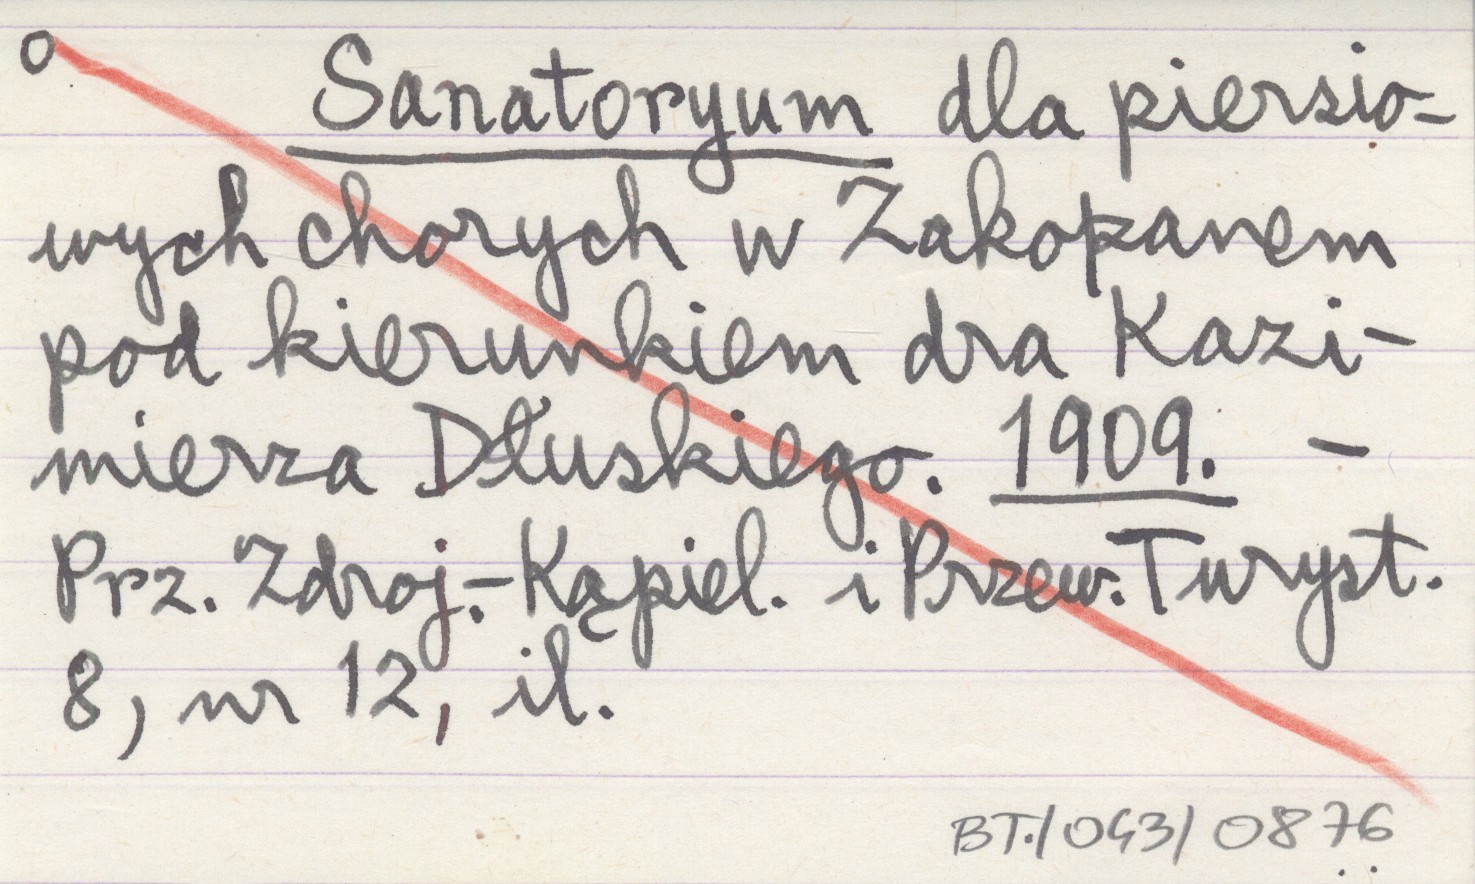 o Sanatoryum dla piersio-
wych chorych w Zakopanem
pod kierunkiem dra Kazi-
mierza Dłuskiego. 1909. -
Prz. Zdroj.-Kąpiel. i Przew. Turyst.
8, nr 12, il.
BT./043/0876